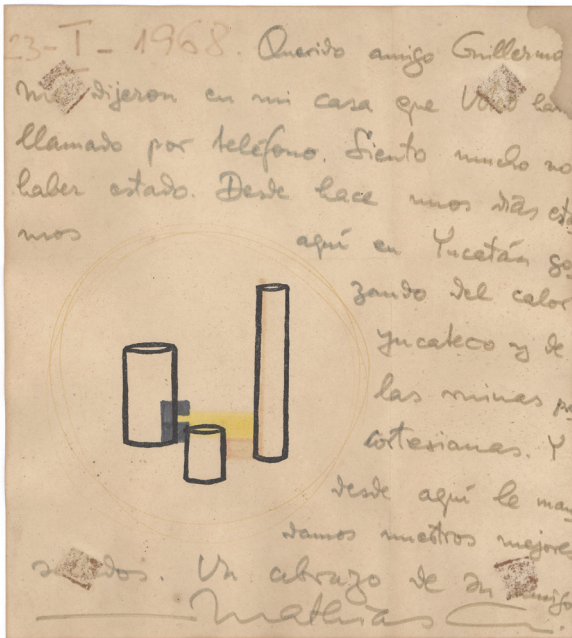 23-I-1968. Querido amigo Guillermo
me dijeron en mi casa que
llamado por teléfono. Siento mucho no
haber estado. Desde hace unos días esta
mos aquí en Yucatán go
zando del calor
yucateco y de
las ruinas
cortesianas. Y
desde aquí le man
damos nuestros mejores
saludos. Un abrazo de su amigo
Mathias